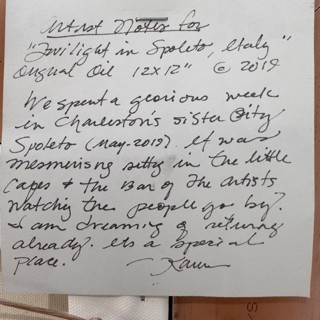 Artist Notes for
"Twilight in Spoleto, Italy"
Original Oil 12x12" © 2019
We spent a glorious week
in Charleston's sister City
Spoleto (May-2019). It was
mesmerising sitting in the little
cafes & the Bar of the Artists
watching the people go by.
I am dreaming of returning
already. Its a special
place.
- Karen